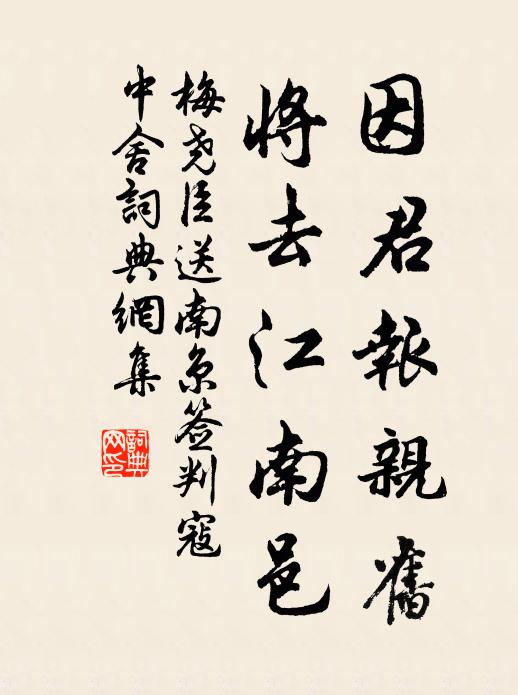 因君報親舊
將去江南邑
梅堯臣送南京签判寇
中舍詞典網集
詞典網印